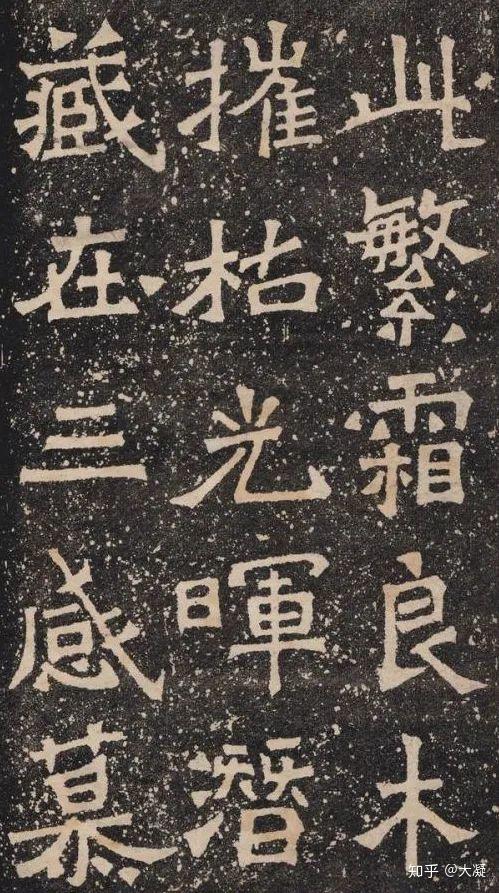 此繁霜良木
摧枯光暉潛
藏在三感慕
知乎 @大凝